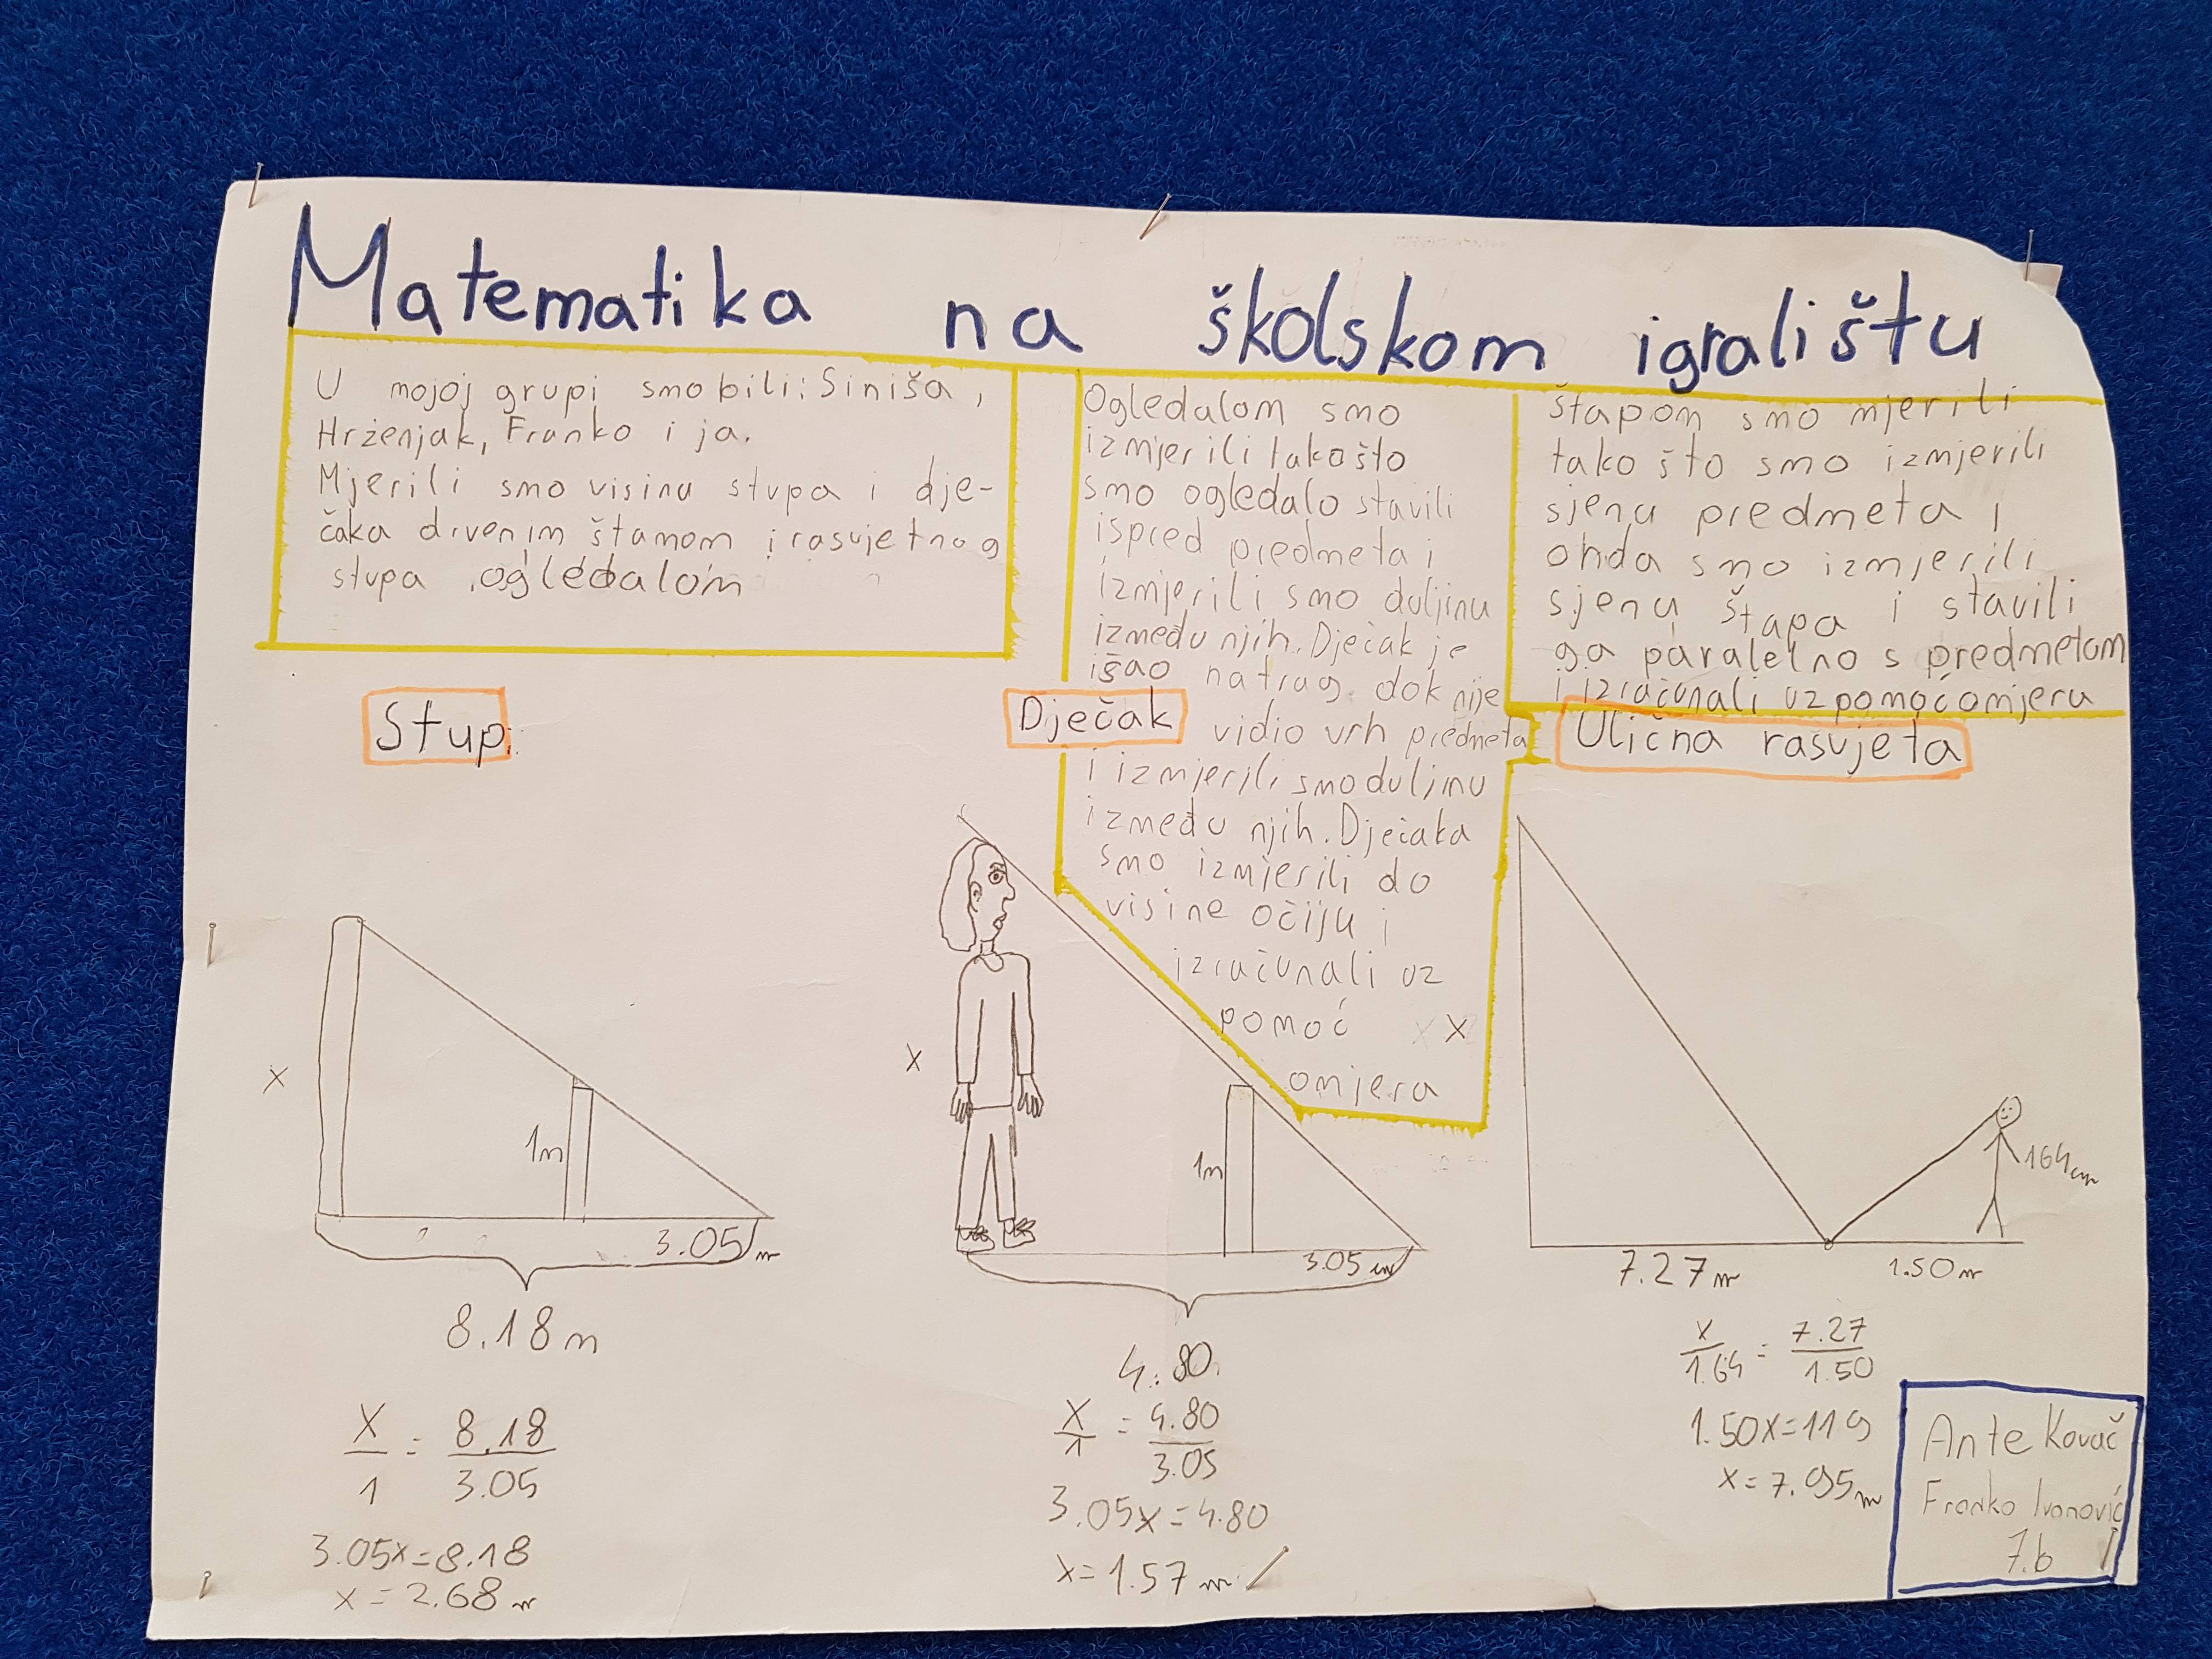 Matematika na školskom igralištu
U mojoj grupi smo bili: Siniša,
Hrženjak, Franko i ja.
Mjerili smo visinu stupa i dje-
čaka drvenim štamom i rasvjetnog
stupa ogledalom
Ogledalom smo
izmjerili tako što
smo ogledalo stavili
ispred predmeta i
izmjerili smo duljinu
između njih. Dječak je
išao natrag dok nije
vidio vrh predmeta
i izmjerili smo duljinu
između njih. Dječaka
smo izmjerili do
visine očiju i
izračunali uz
pomoć x
omjera
štapom smo mjerili
tako što smo izmjerili
sjenu predmeta i
onda smo izmjerili
sjenu štapa i stavili
ga paralelno s predmetom
i izračunali uz pomoć omjera
Stup:
x
1m
3.05 m
8.18 m
x/1 = 8.18/3.05
3.05x=8.18
x=2.68 m
Dječak
x
1m
3.05 m
4.80
x/1 = 4.80/3.05
3.05x=4.80
x=1.57 m
Ulična rasvjeta
164cm
7.27 m
1.50 m
x/1.64 = 7.27/1.50
1.50x=119
x=7.95 m
Ante Kovač
Franko Ivanović
7.b